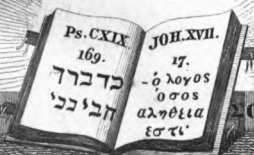 Ps. CXIX.
169.
כדברך
הביכני
JOH. XVII.
17.
-ὁ λογος
ὁ σος
αληθεια
εστι·